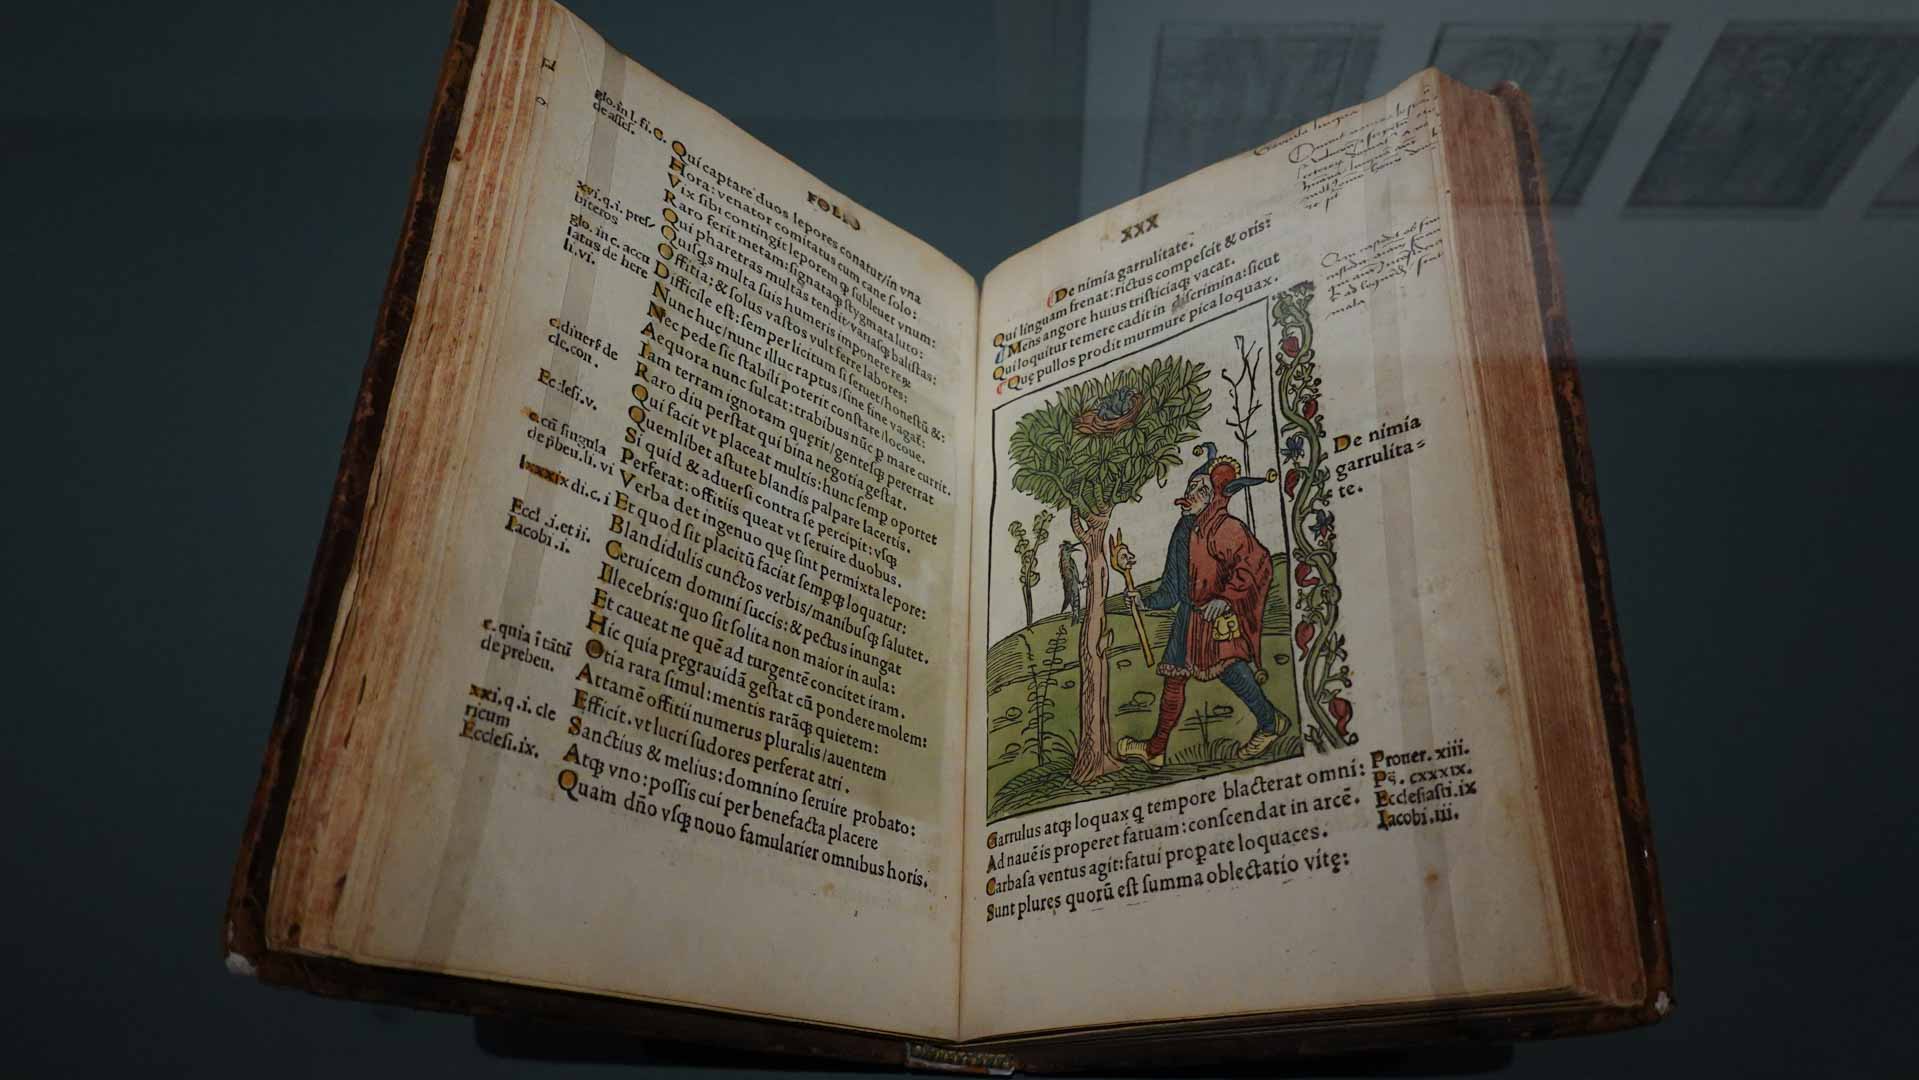 FOLIO
glo. in l. fi. c.
de assess.
Qui captare duos lepores conatur/in vna
Hora: venator comitatus cum cane solo:
Vix sibi contingit leporem ꝙ subleuet vnum:
Raro ferit metam: signataqꝫ stygmata luto:
xvi. q. i. pres-
biteros
Qui pharetras multas tendit/variasqꝫ balistas:
Quisqs multa suis humeris imponere
glo. in c. accu
latus de here
li. vi.
Offitia: & solus vastos vult ferre labores:
Difficile est: semper licitum si seruet/honestū &:
Nunc huc/nunc illuc raptus/sine fine vagat:
Nec pede sic stabili poterit constare/locoue.
c. diuers de
cle. con.
Aequora nunc sulcat: trabibus nūc ꝑ mare currit.
Iam terram ignotam quęrit/gentesqꝫ pererrat
Raro diu perstat qui bina negotia gestat.
Ecclesi. v.
Qui facit vt placeat multis: hunc semꝑ oportet
Quemlibet astute blandis palpare lacertis.
Si quid & aduersi contra se percipit: vsqꝫ
c. cū singula
de p̄ben. li. vi
Perferat: offitiis queat vt seruire duobus.
Verba det ingenuo quę sint permixta lepore:
lxxxix di. c. i
Et quod sit placitū faciat sempqꝫ loquatur:
Eccl. i. et ii.
Iacobi. i.
Blandidulis cunctos verbis/manibusqꝫ salutet.
Ceruicem domini succis: & pectus inungat
Illecebris: quo sit solita non maior in aula:
Et caueat ne quē ad turgentē concitet iram.
Hic quia pręgrauidā gestat cū pondere molem:
c. quia ī tātū
de preben.
Otia rara simul: mentis rarāqꝫ quietem:
Attamē offitii numerus pluralis/auentem
Efficit. vt lucri sudores perferat atri.
xxi. q. i. cle
ricum
Ecclesi. ix.
Sanctius & melius: domnino seruire probato:
Atqꝫ vno: possis cui per benefacta placere
Quam dño vsqꝫ nouo famularier omnibus horis.
XXX
De nimia garrulitate:
Qui linguam frenat: rictus compescit & oris:
Mens angore huius tristiciaqꝫ vacat.
Qui loquitur temere cadit in discrimina: sicut
Quę pullos prodit murmure pica loquax.
De nimia
garrulita=
te.
Garrulus atqꝫ loquax q̄ tempore blacterat omni:
Ad nauē is properet fatuam: conscendat in arcē.
Carbasa ventus agit: fatui ꝓpate loquaces.
Sunt plures quorū est summa oblectatio vitę:
Prouer. xiii.
Ps. cxxxix.
Ecclesiasti. ix
Iacobi. iii.